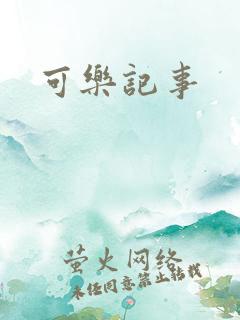 可樂記事
萤火网络
未经同意禁止转载